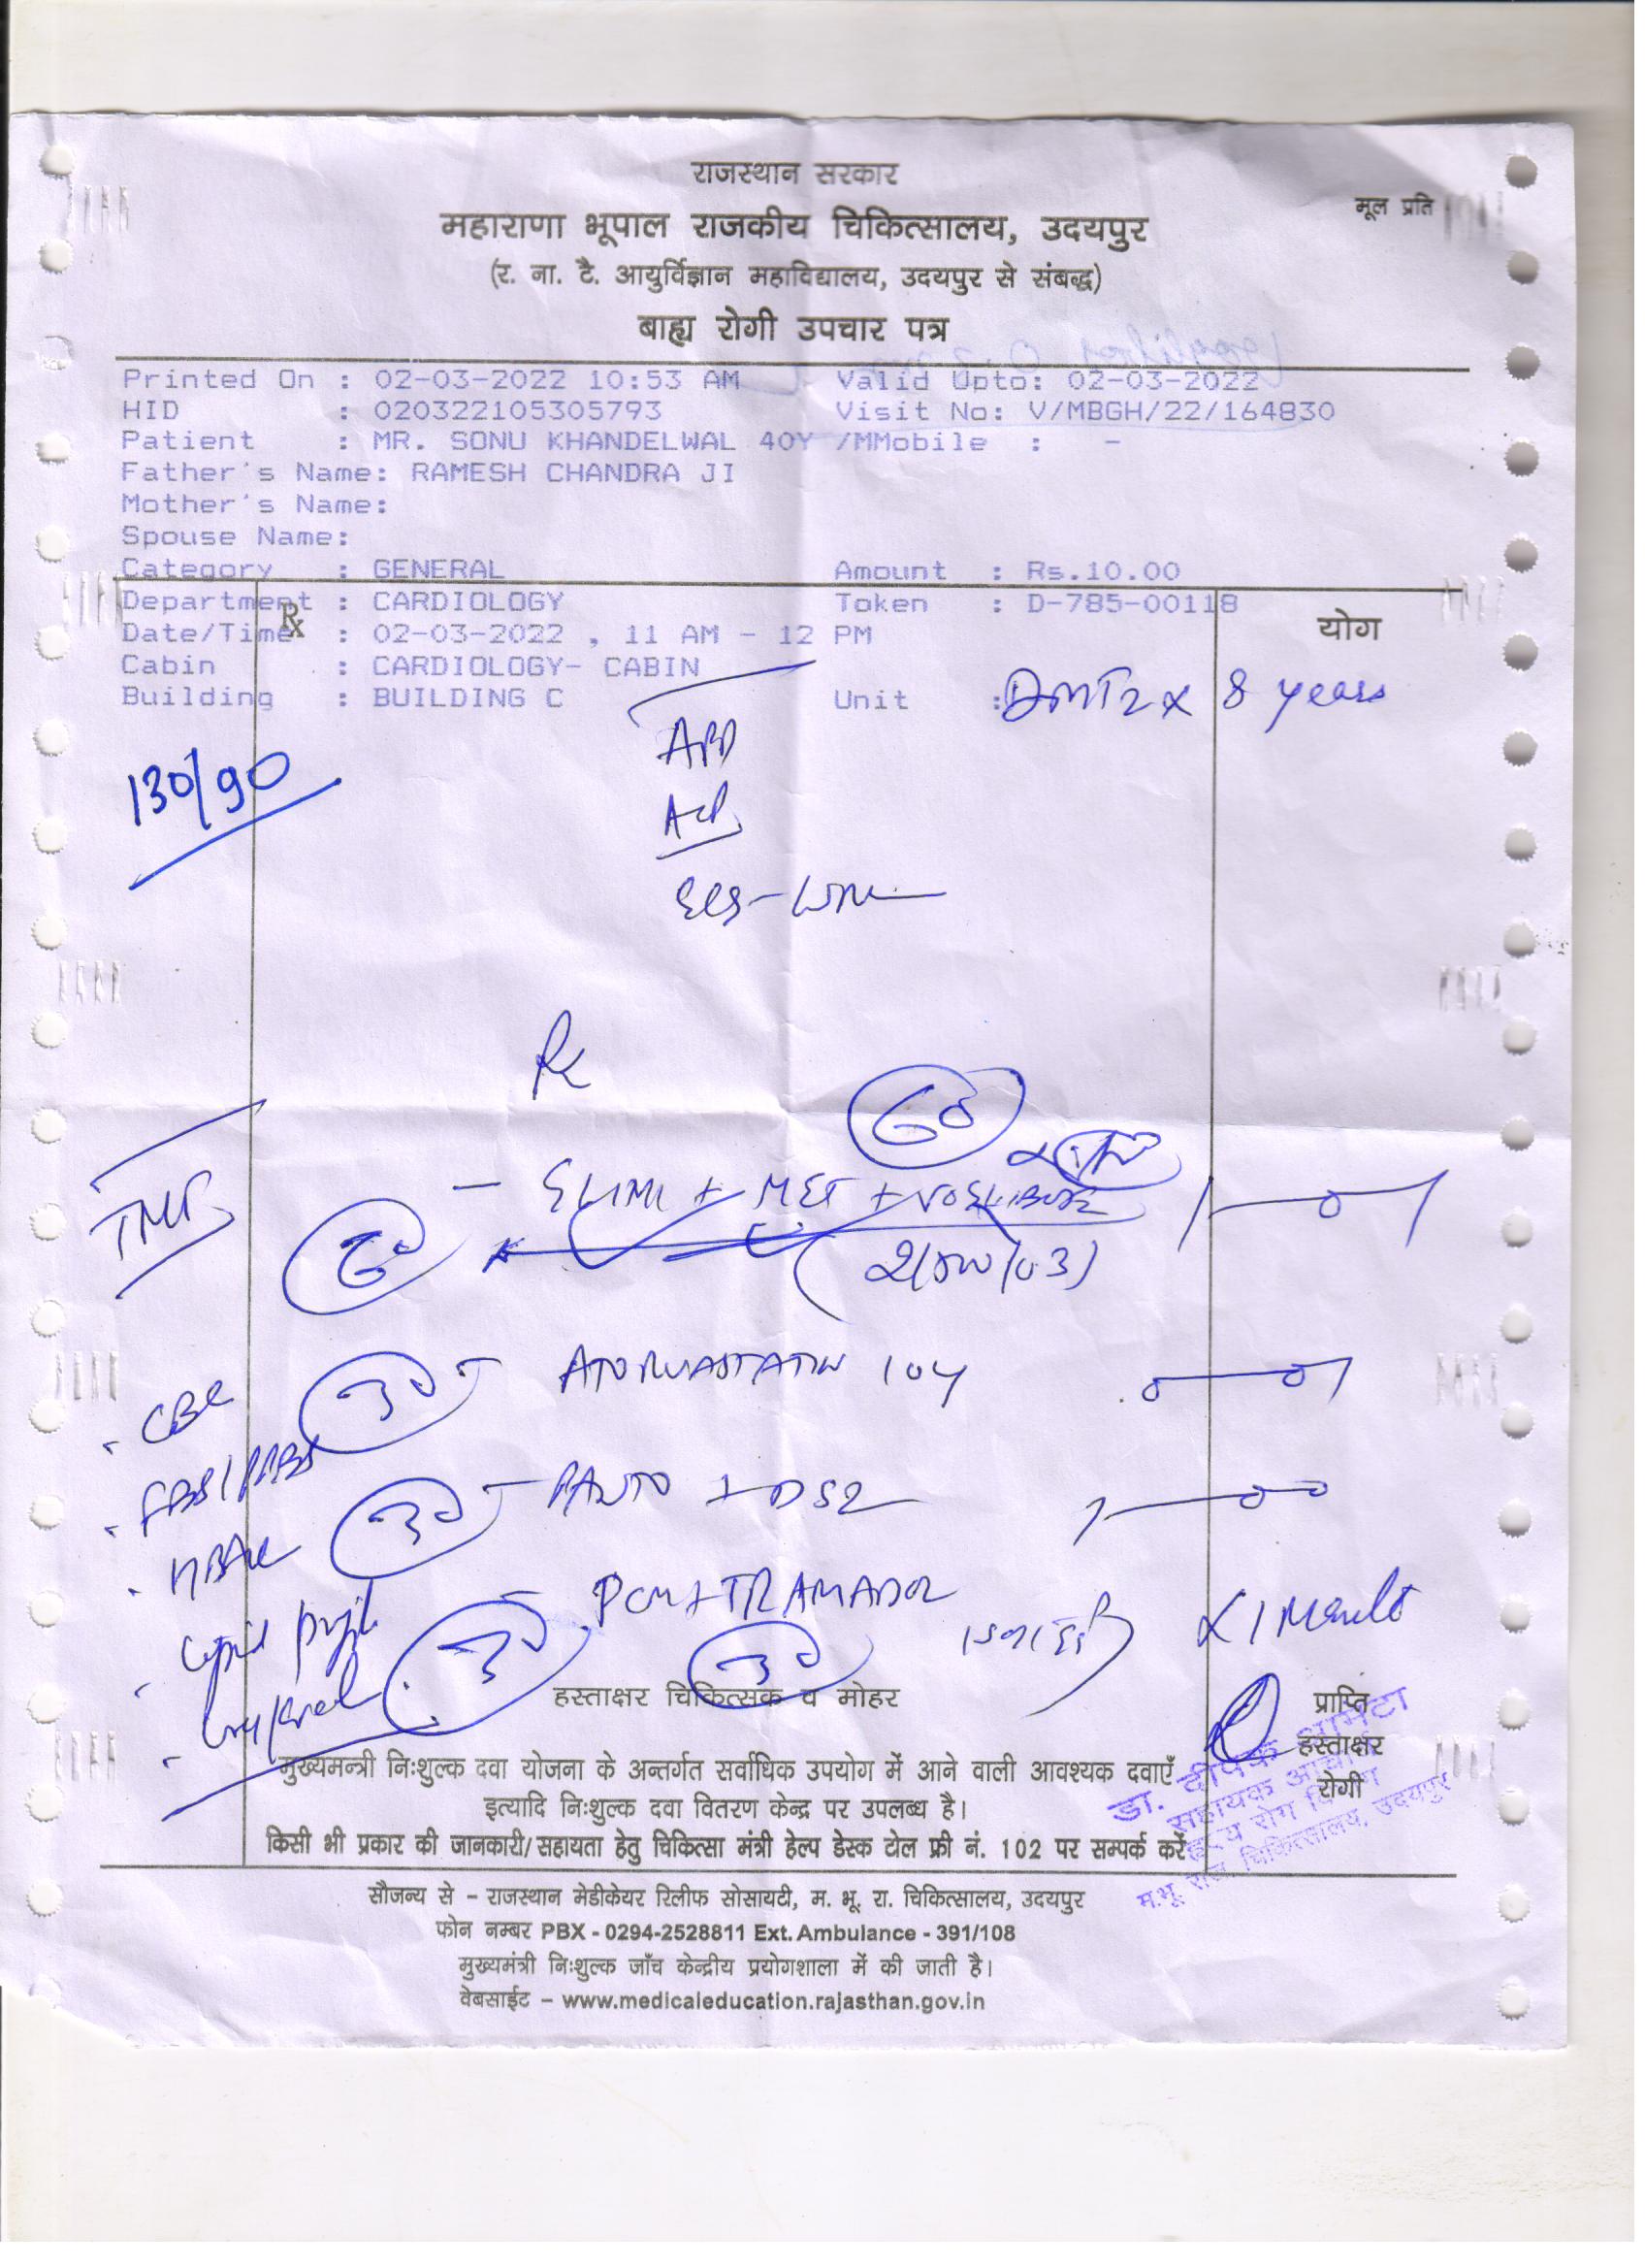 राजस्थान सरकार
मूल प्रति
महाराणा भूपाल राजकीय चिकित्सालय, उदयपुर
(र. ना. टै. आयुर्विज्ञान महाविद्यालय, उदयपुर से संबद्ध)
बाह्य रोगी उपचार पत्र
Printed On : 02-03-2022 10:53 AM Valid Upto: 02-03-2022
HID : 020322105305793 Visit No: V/MBGH/22/164830
Patient : MR. SONU KHANDELWAL 40Y /MMobile : -
Father's Name: RAMESH CHANDRA JI
Mother's Name:
Spouse Name:
Category : GENERAL Amount : Rs.10.00
Department : CARDIOLOGY Token : D-785-00118
Rx योग
Date/Time : 02-03-2022 , 11 AM - 12 PM
Cabin : CARDIOLOGY- CABIN
Building : BUILDING C Unit :
DMT2 x 8 years
130/90
Rx
60
TMT
GLIMI + MET + VOGLIBOSE
60
CBC
30 - ATORVASTATIN 10
FBS/PPBS
30 - PANTO + DSR
HBA1c
30 - PCM + TRAMADOL
Lipid profile
30
x 1 Month
हस्ताक्षर चिकित्सक व मोहर
प्राप्ति
हस्ताक्षर
रोगी
डा. दीपक आमेटा
सहायक आचार्य
हृदय रोग विभाग
म.भू. राज. चिकित्सालय, उदयपुर
मुख्यमन्त्री निःशुल्क दवा योजना के अन्तर्गत सर्वाधिक उपयोग में आने वाली आवश्यक दवाएँ
इत्यादि निःशुल्क दवा वितरण केन्द्र पर उपलब्ध है।
किसी भी प्रकार की जानकारी/सहायता हेतु चिकित्सा मंत्री हेल्प डेस्क टोल फ्री नं. 102 पर सम्पर्क करें
सौजन्य से – राजस्थान मेडीकेयर रिलीफ सोसायटी, म. भू. रा. चिकित्सालय, उदयपुर
फोन नम्बर PBX - 0294-2528811 Ext. Ambulance - 391/108
मुख्यमंत्री निःशुल्क जाँच केन्द्रीय प्रयोगशाला में की जाती है।
वेबसाईट – www.medicaleducation.rajasthan.gov.in